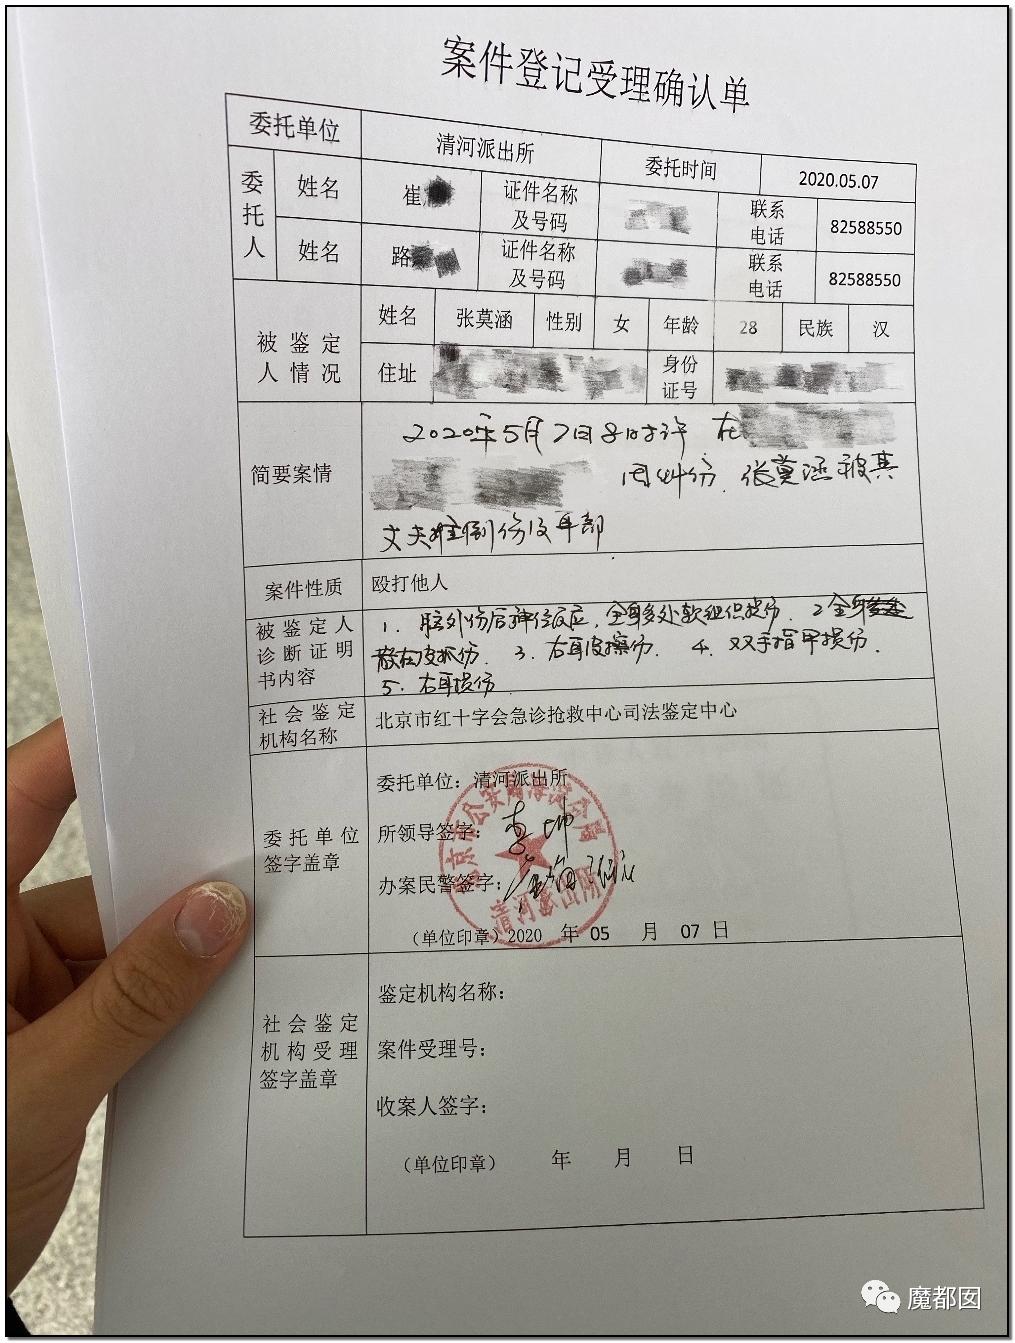 案件登记受理确认单
委托单位 清河派出所 委托时间 2020.05.07
委托人 姓名 崔 证件名称及号码 联系电话 82588550
姓名 路 证件名称及号码 联系电话 82588550
被鉴定人情况 姓名 张莫涵 性别 女 年龄 28 民族 汉
住址 身份证号
简要案情 2020年5月7日8时许 在
因纠纷,张莫涵被其
丈夫推倒伤及耳部
案件性质 殴打他人
被鉴定人诊断证明书内容 1. 脑外伤后神经反应,全身多处软组织损伤. 2
散在皮抓伤. 3. 右耳皮擦伤. 4. 双手指甲损伤.
5. 右耳损伤
社会鉴定机构名称 北京市红十字会急诊抢救中心司法鉴定中心
委托单位签字盖章
委托单位：清河派出所
所领导签字：
办案民警签字：
（单位印章）2020 年 05 月 07 日
北京市公安局海淀分局
清河派出所
社会鉴定机构受理签字盖章
鉴定机构名称：
案件受理号：
收案人签字：
（单位印章） 年 月 日
魔都囡